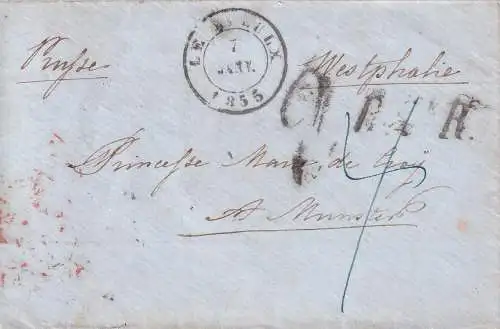 Prusse
LE RŒULX
7
JANV.
1855
Westphalie
R. 2 R.
Princesse Marie de Croÿ
A Munster